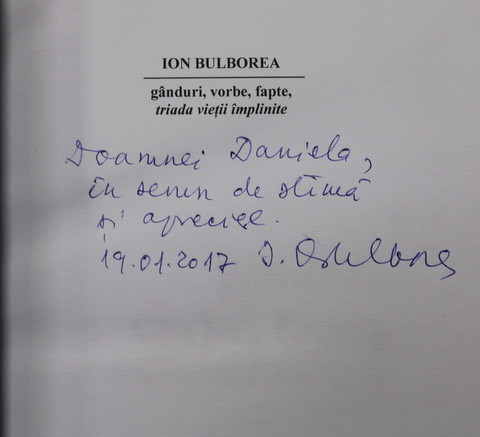 ION BULBOREA
gânduri, vorbe, fapte,
triada vieții împlinite
Doamnei Daniela,
în semn de stimă
și apreciere.
19.01.2017 I. Bulborea